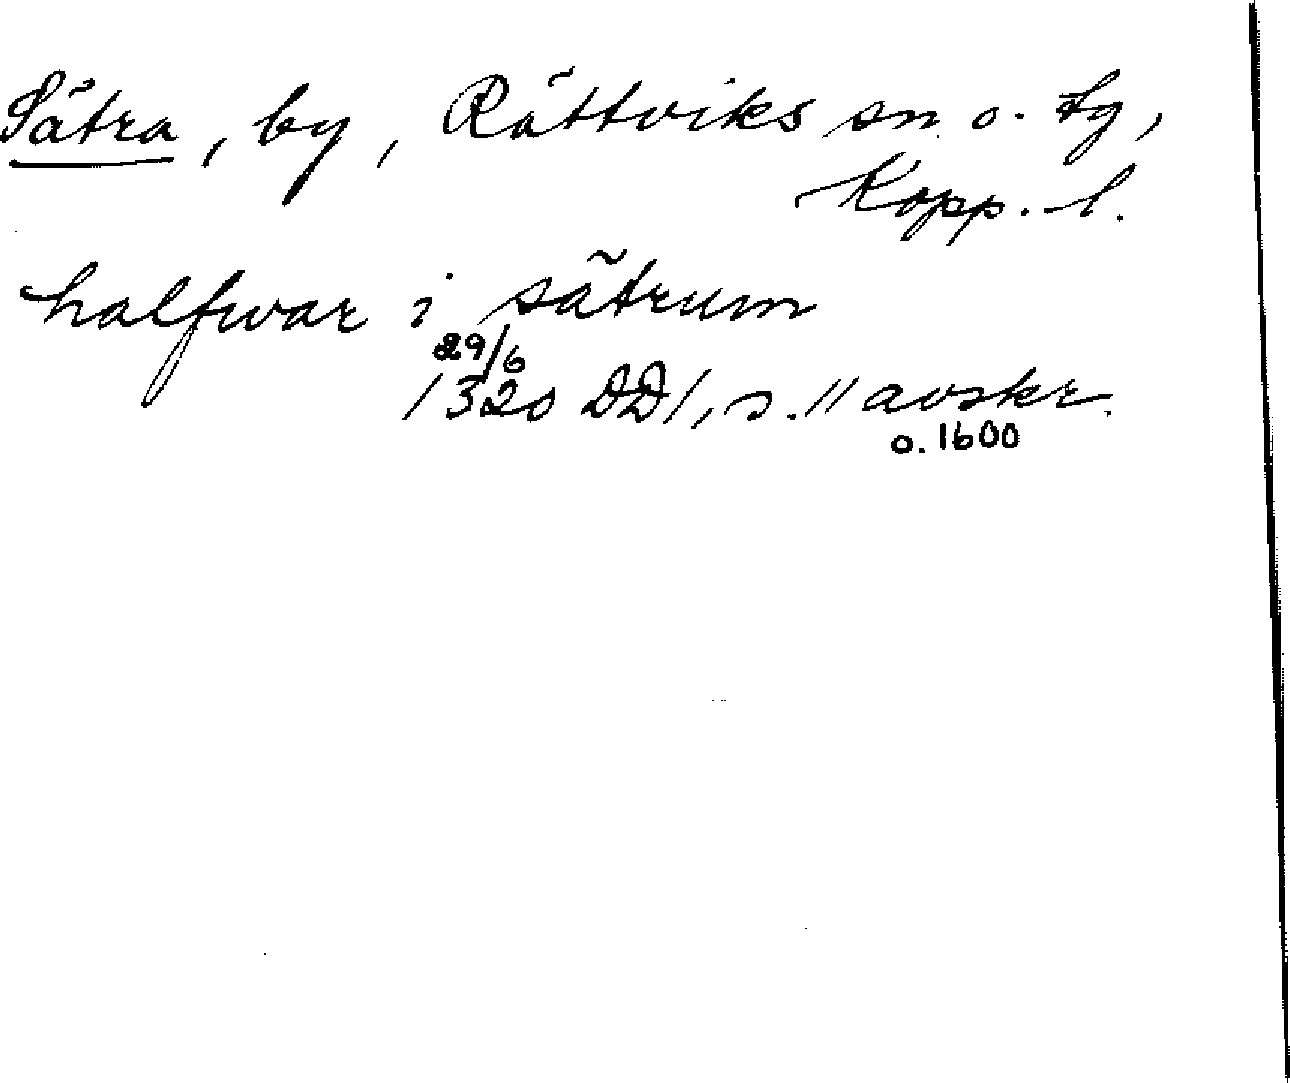 Sätra, by, Rättviks sn o. tg,
Kopp. l.
halfwar i sätrum
29/6
1320 DD1, s. 11 avskr.
o. 1600